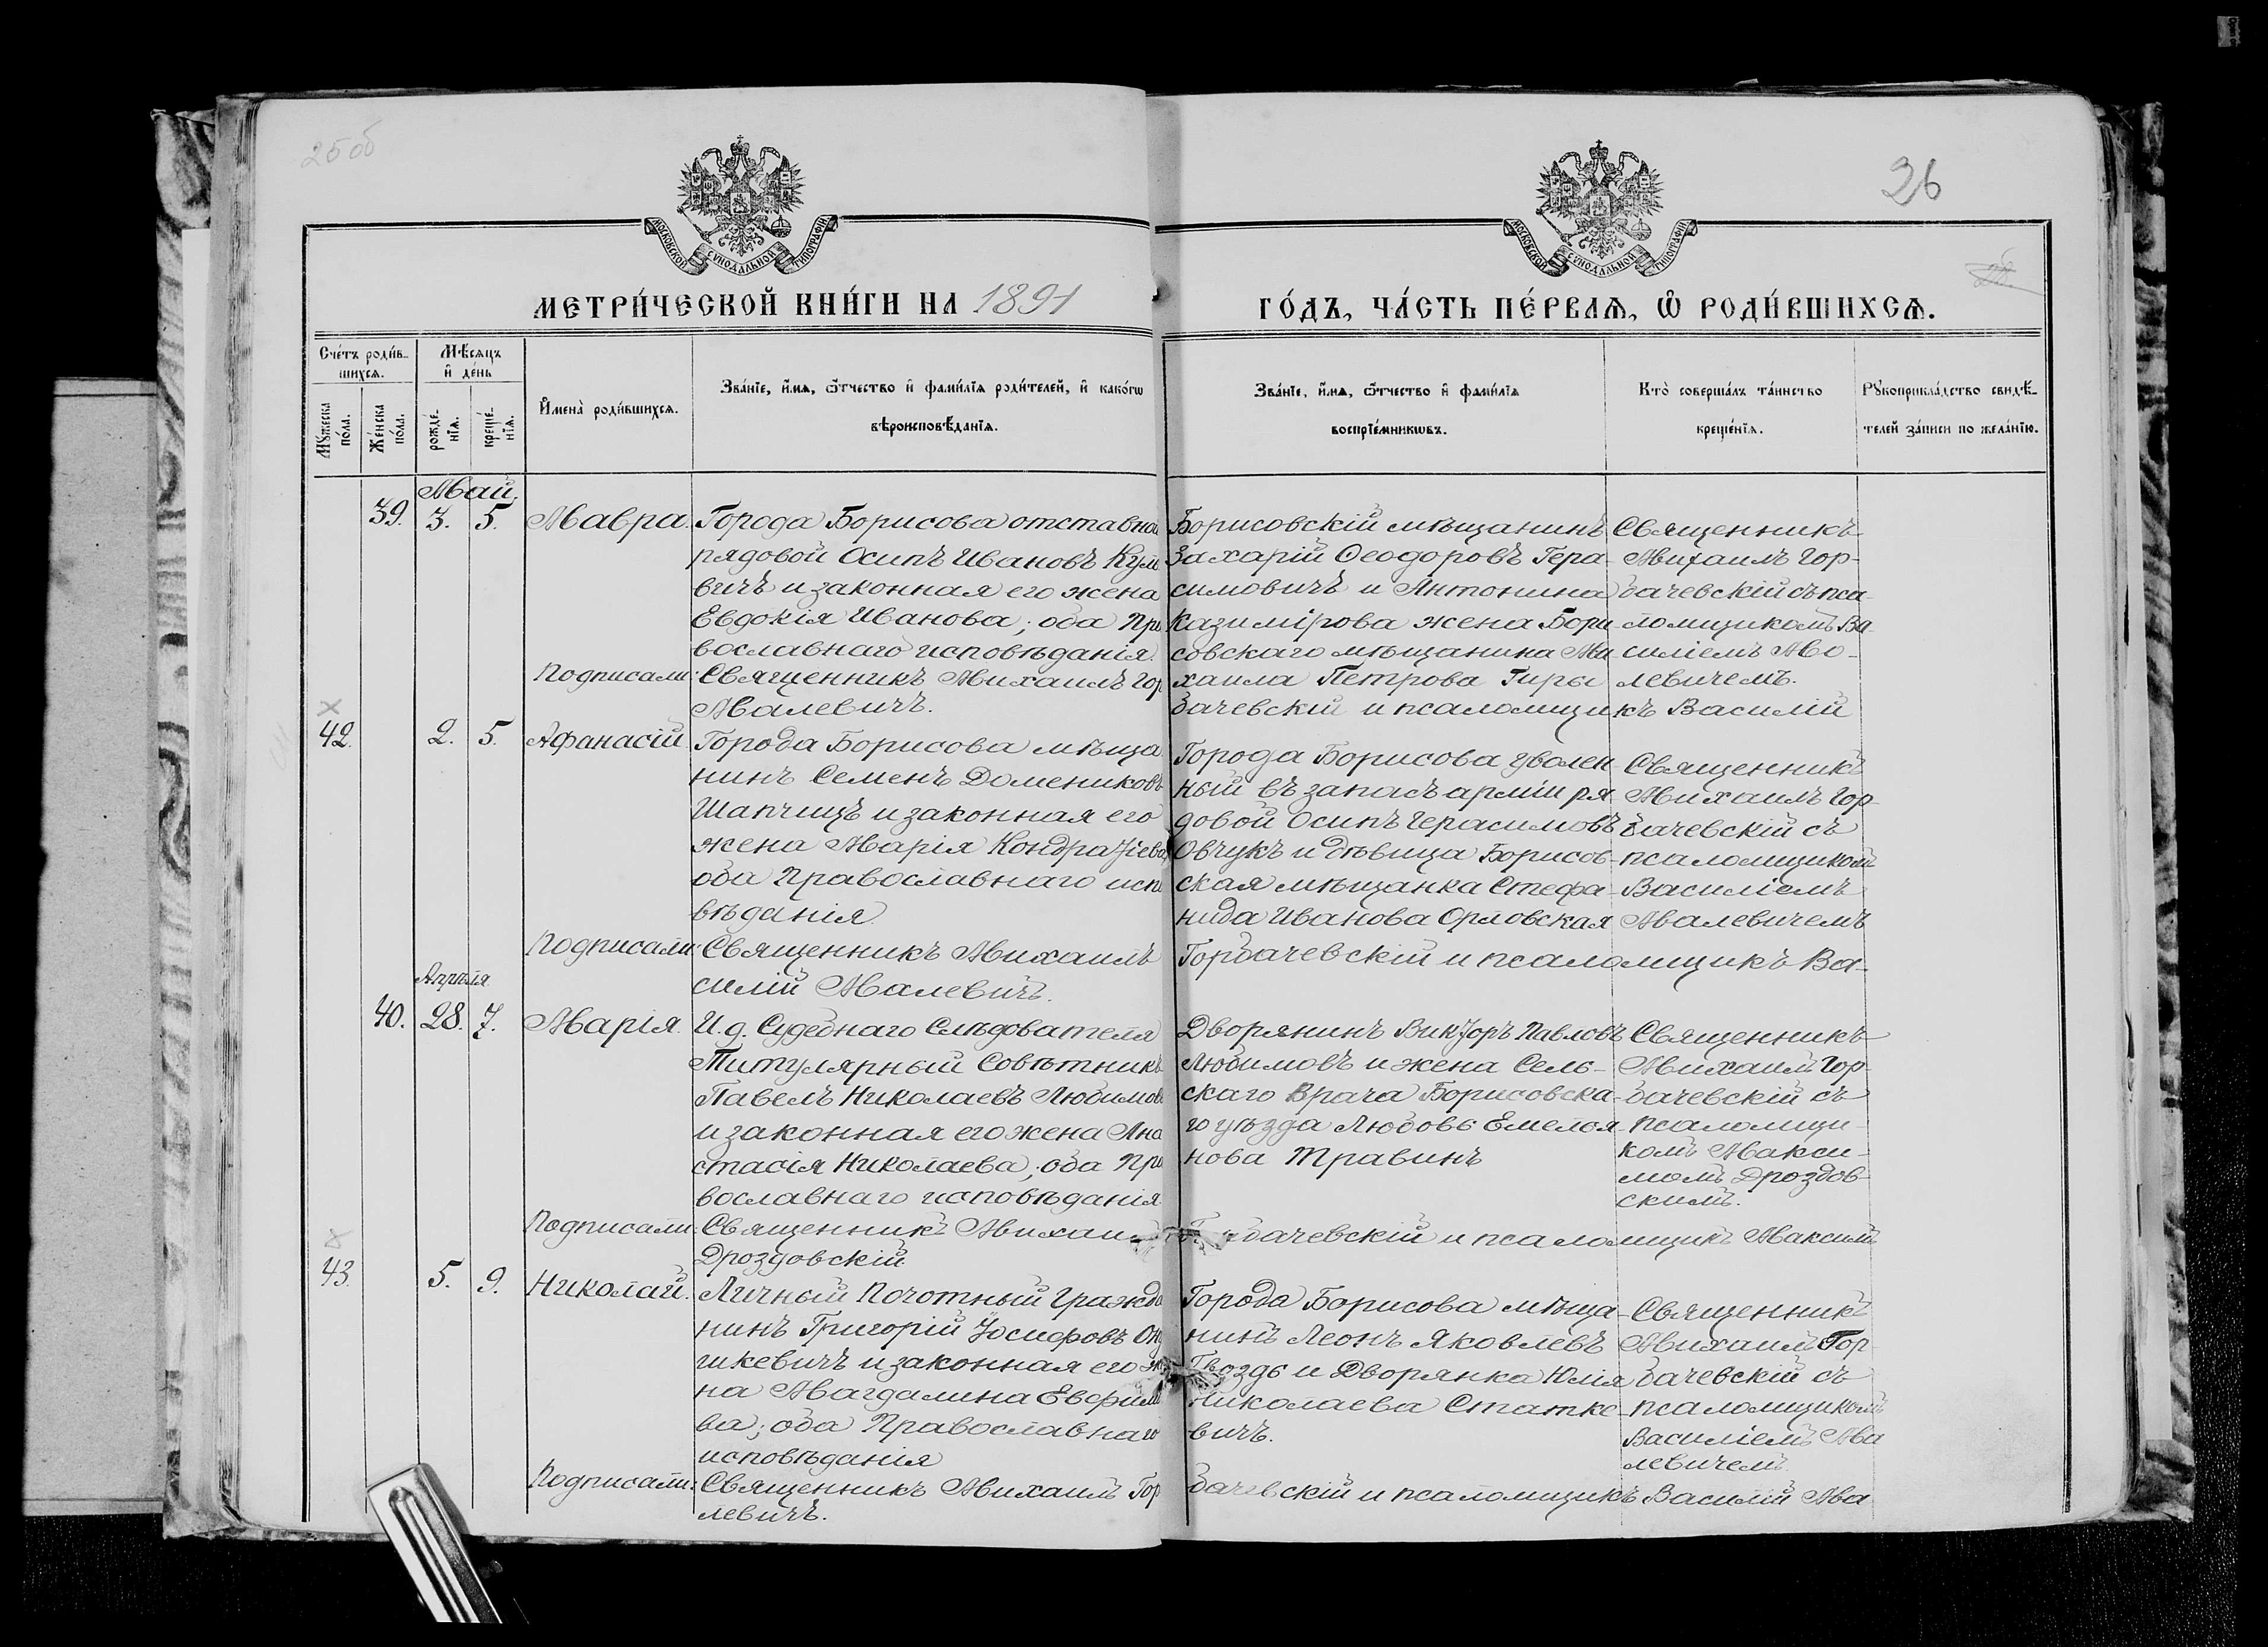 25 об
26
МОСКОВСКОЙ СУНОДАЛЬНОЙ ТИПОГРАФІИ
МОСКОВСКОЙ СУНОДАЛЬНОЙ ТИПОГРАФІИ
МЕТРИ́ЧЕСКОЙ КНИ́ГИ НА 1891
ГО́ДЪ, ЧА́СТЬ ПЕ́РВАѦ, Ѡ҆ РОДИ́ВШИХСѦ.
Сче́тъ роди́в-
шихсѧ.
Мꙋжеска по́ла.
Же́нска по́ла.
Мѣ́сѧцъ
и҆ де́нь
рожде́-
нїѧ.
креще́-
нїѧ.
И҆мена̀ роди́вшихсѧ.
Зва́нїе, и҆́мѧ, ѻ҆́тчество и҆ фами́лїѧ роди́телей, и҆ како́гѡ
вѣроисповѣ́данїѧ.
Зва́нїе, и҆́мѧ, ѻ҆́тчество и҆ фами́лїѧ
воспрїе́мникѡвъ.
Кто̀ соверша́лъ та́инство
креще́нїѧ.
Рꙋкоприкла́дство свидѣ́-
телей за́писи по жела́нїю.
Май.
39. 3. 5. Мавра.
Города Борисова отставно
рядовой Осипъ Ивановъ Кул
вичъ и законная его жена
Евдокія Иванова; оба Пра
вославнаго исповѣданія.
Борисовскій мѣщанинъ
Захарій Ѳеодоровъ Гера-
симовичъ и Антонина
Казимірова жена Бори
совскаго мѣщанина Ми
хаила Петрова Гиры
Священникъ
Михаилъ Гор-
бачевскій съ пса-
ломщикомъ Ва-
силіемъ Мо-
левичемъ.
Подписали: Священникъ Михаилъ Гор бачевскій и псаломщикъ Василій
Малевичъ.
42. 2. 5. Афанасій.
Города Борисова мѣща
нинъ Семенъ Домениковъ
Шапчицъ и законная его
жена Марія Кондратіева,
оба Православнаго испо
вѣданія.
Города Борисова уволен-
ный въ запасъ арміи ря-
довой Осипъ Герасимовъ
Овчукъ и дѣвица Борисов-
ская мѣщанка Стефа-
нида Иванова Орловская
Священникъ
Михаилъ Гор-
бачевскій съ
псаломщикомъ
Василіемъ
Малевичемъ
Подписали: Священникъ Михаилъ Горбачевскій и псаломщикъ Ва-
силій Малевичъ.
Апрѣля
40. 28. 7. Марія.
И.д. Судебнаго Слѣдователя
Титулярный Совѣтникъ
Павелъ Николаевъ Любимовъ
и законная его жена Ана
стасія Николаева; оба Пра
вославнаго исповѣданія
Дворянинъ Викторъ Павловъ
Любимовъ и жена Сель-
скаго Врача Борисовска-
го уѣзда Любовь Емелья-
нова Травинъ
Священникъ
Михаилъ Гор-
бачевскій съ
псаломщи-
комъ Макси-
момъ Дроздов-
скимъ.
Подписали: Священникъ Михаилъ Горбачевскій и псаломщикъ Максимъ
Дроздовскій
43. 5. 9. Николай.
Личный Почотный Гражда
нинъ Григорій Іосифовъ
шкевичъ и законная его же
на Магдалина Евфимо
ва; оба Православнаго
исповѣданія
Города Борисова мѣща-
нинъ Леонъ Яковлевъ
Гвоздь и Дворянка Юлія
Николаева Статке-
вичъ.
Священникъ
Михаилъ Гор-
бачевскій съ
псаломщикомъ
Василіемъ Ма
левичемъ.
Подписали: Священникъ Михаилъ Гор бачевскій и псаломщикъ Василій Ма
левичъ.